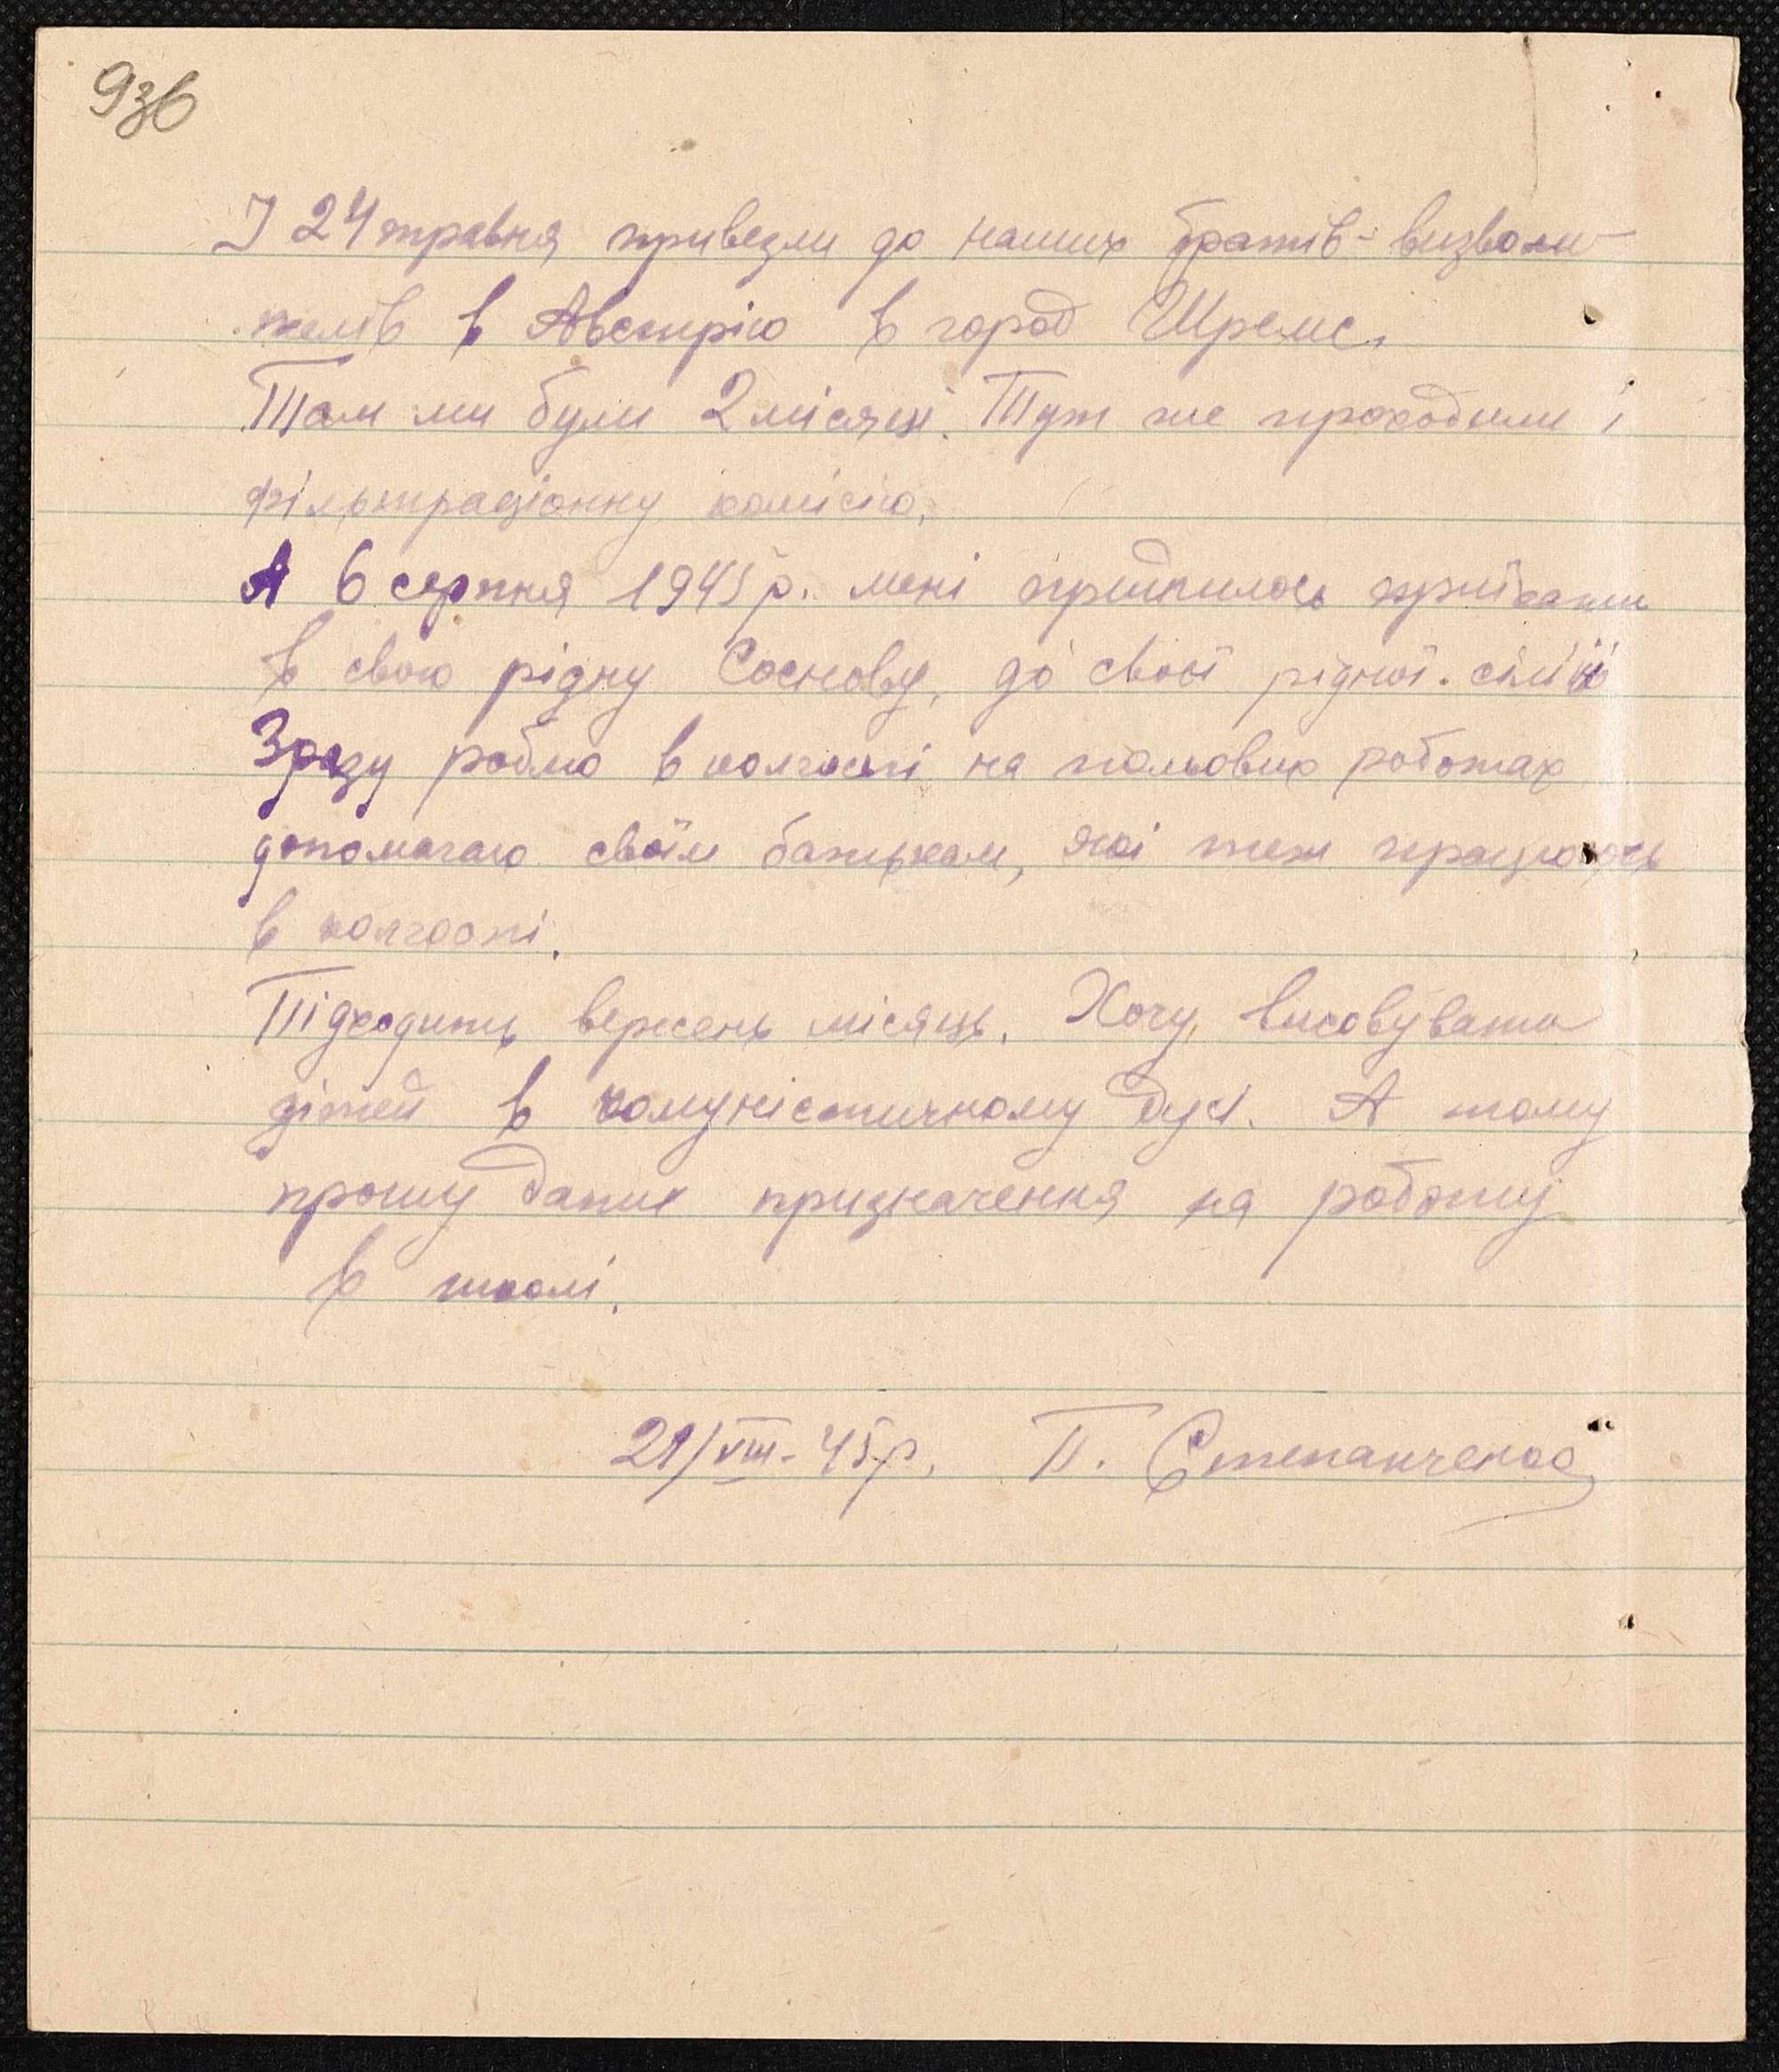 93б
І 24 травня привезли до наших братів-визволи-
телів в Австрію в город Шремс.
Там ми були 2 місяці. Тут же проходили і
фільтраціонну комісію.
А 6 серпня 1945 р. мені прийшлось приїхати
в свою рідну Соснову, до своєї рідної сім'ї
Зразу роблю в колгоспі на польових роботах
допомагаю своїм батькам, які теж працюють
в колгоспі.
Підходить вересень місяць. Хочу виховувати
дітей в комуністичному дусі. А тому
прошу дати призначення на роботу
в школі.
21/VIII-45 р. П. Степанченко